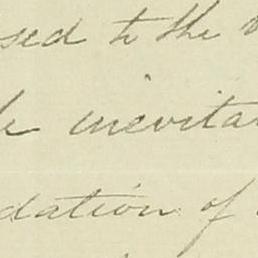 sed to the
inevita
dation of